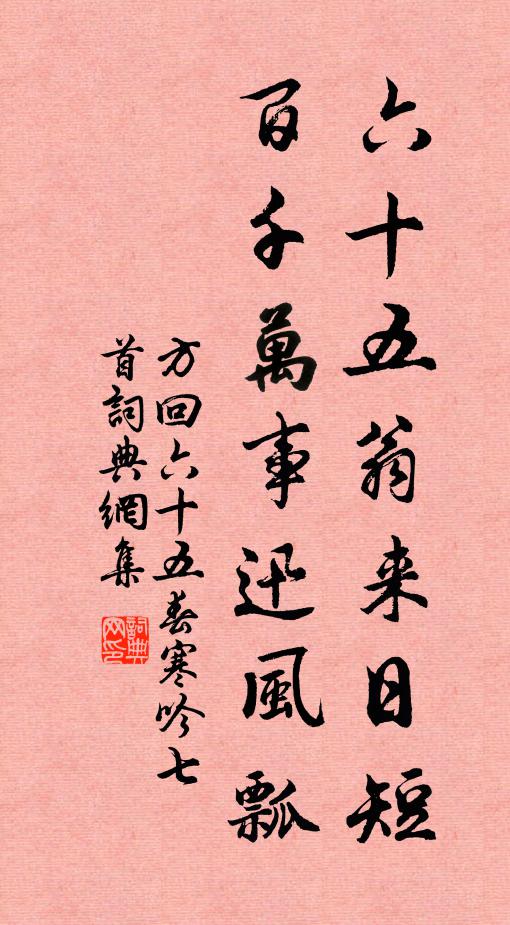 六十五翁来日短
百千萬事迅風瓢
方回六十五春寒吟七
首詞典網集
詞典
网印